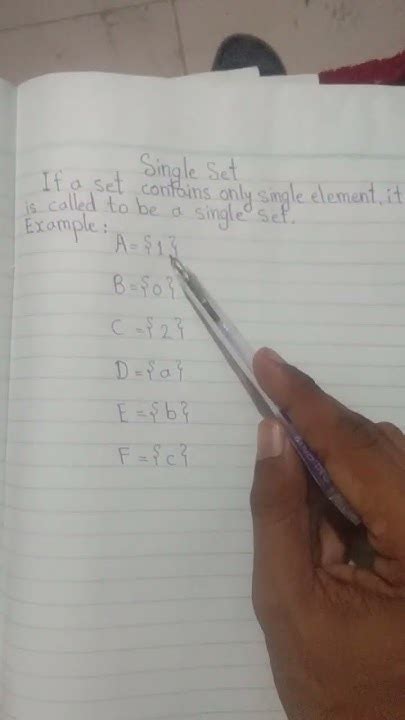 Single Set
If a set contains only single element, it
is called to be a single set.
Example:
A = {1}
B = {0}
C = {2}
D = {a}
E = {b}
F = {c}